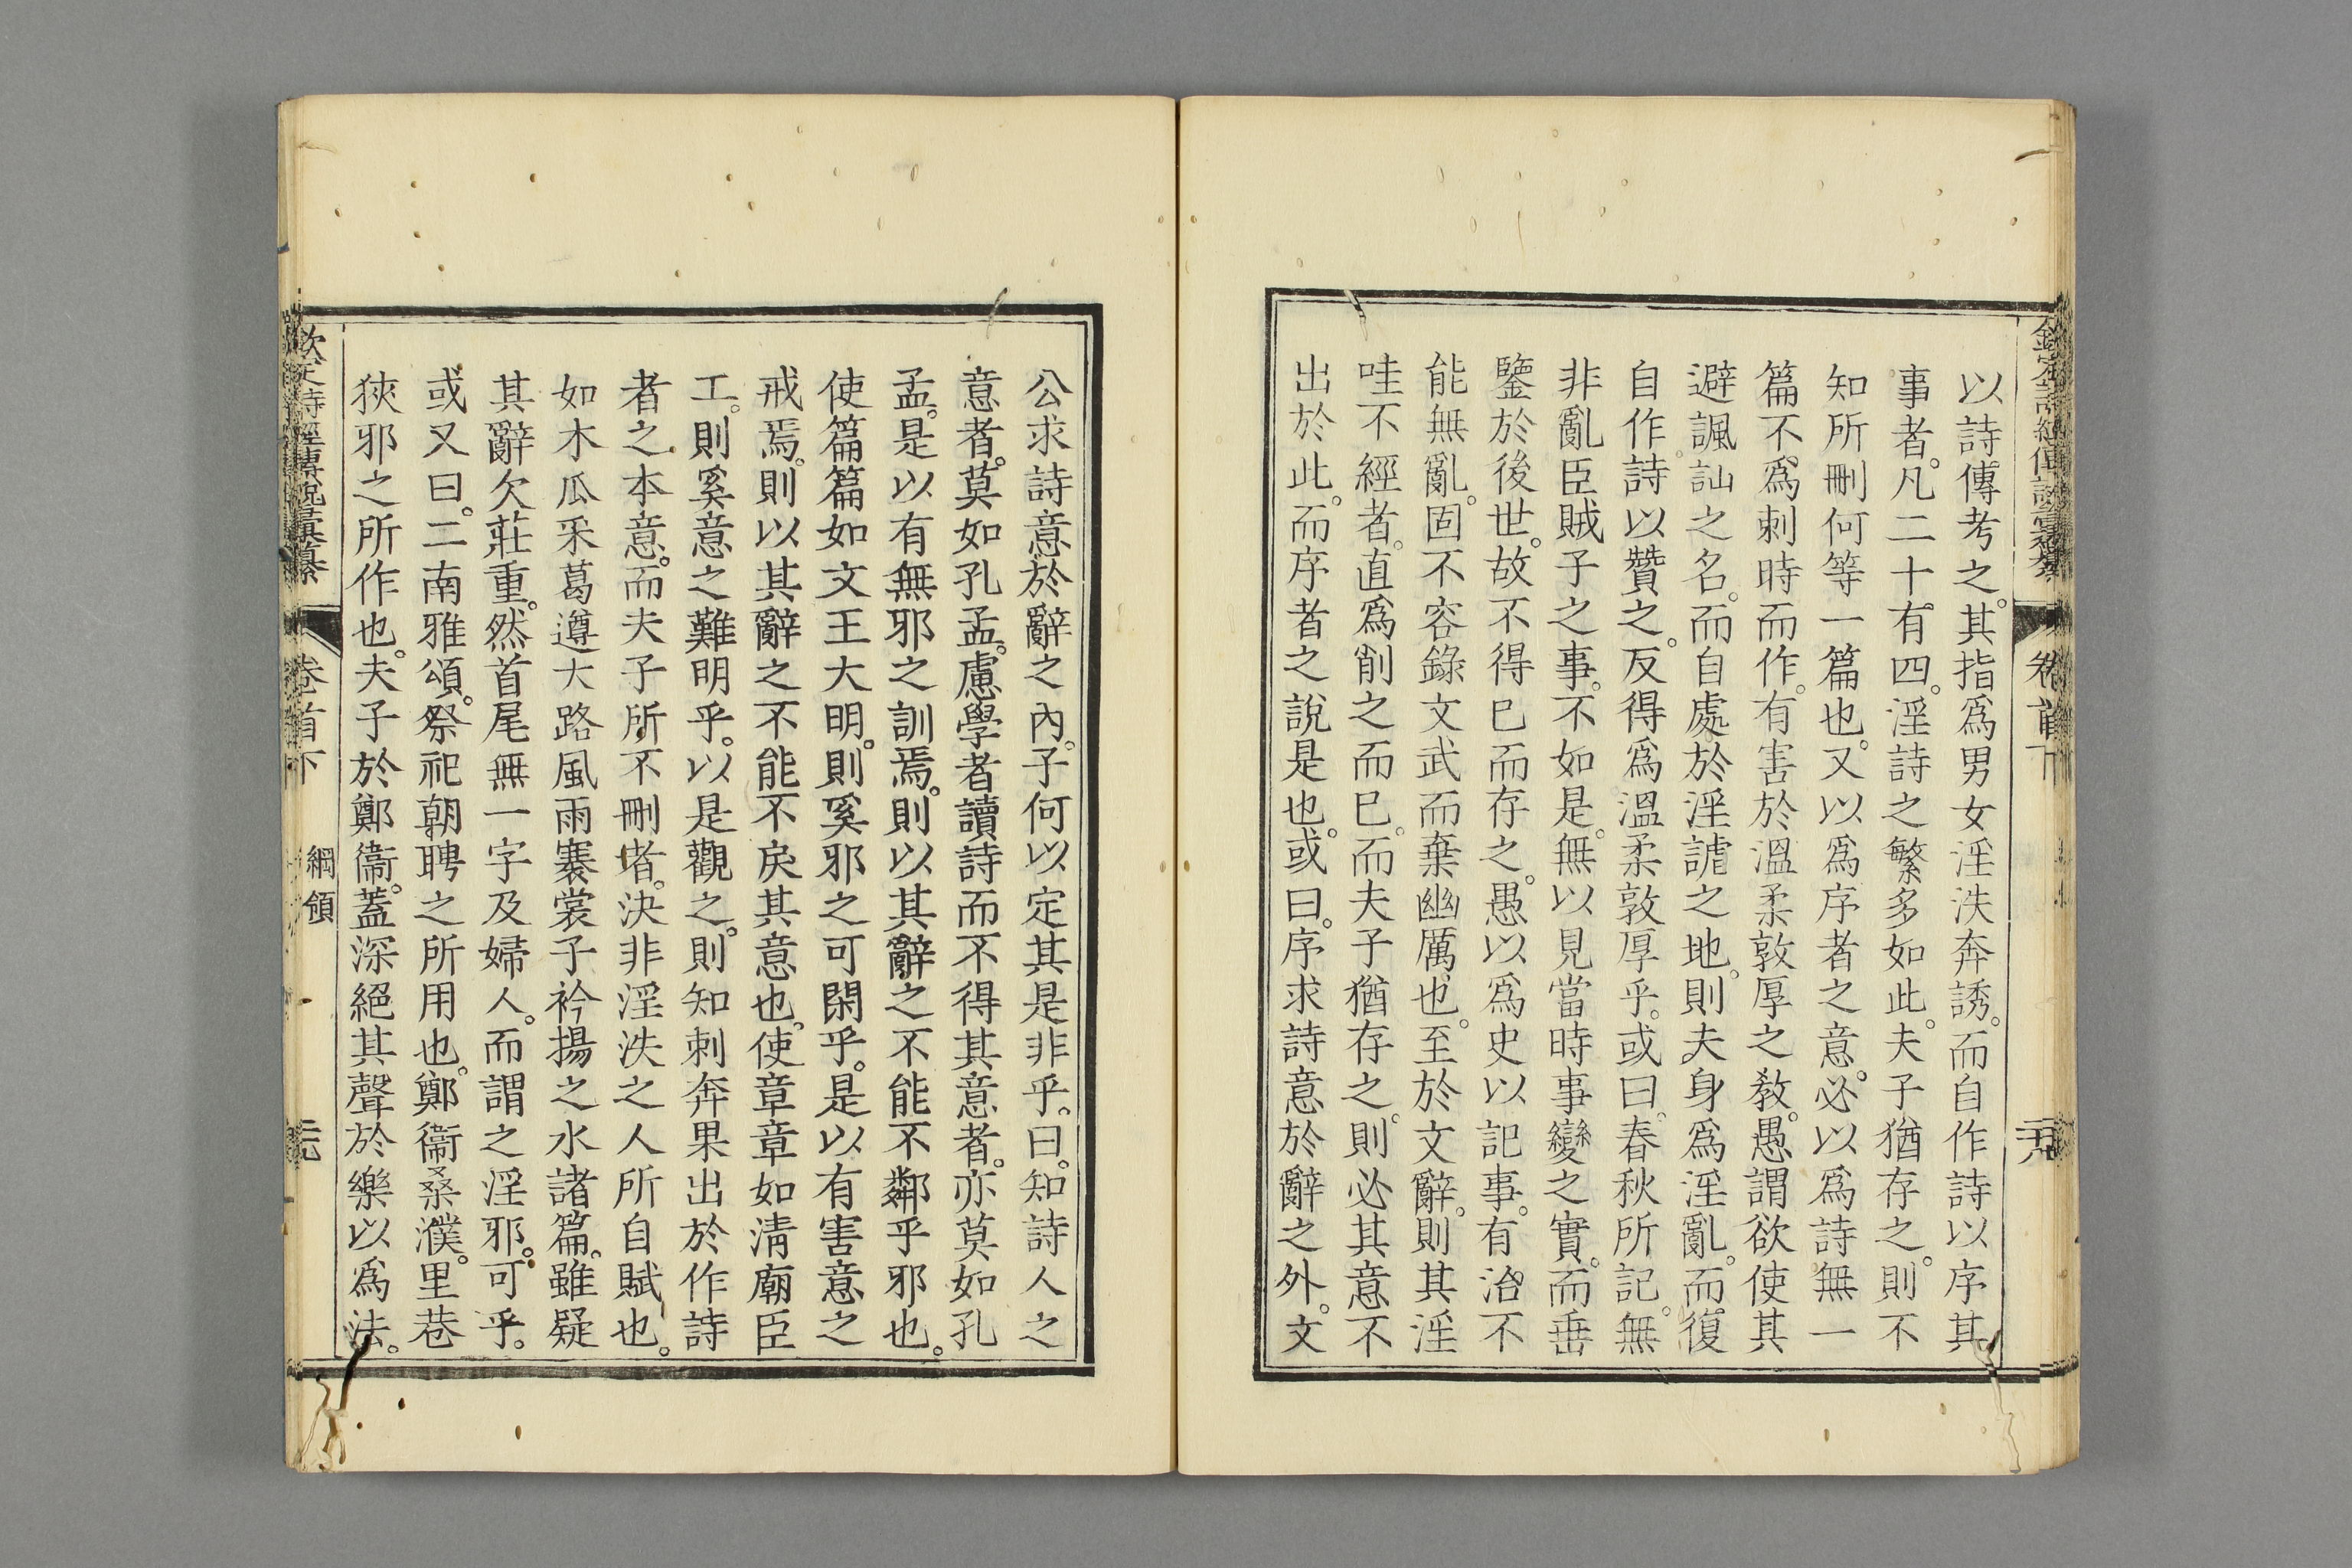 以詩傳考之。其指爲男女淫泆奔誘。而自作詩以序其
事者。凡二十有四。淫詩之繁多如此。夫子猶存之。則不
知所刪何等一篇也。又以爲序者之意。必以爲詩無一
篇不爲刺時而作。有害於溫柔敦厚之敎。愚謂欲使其
避諷訕之名。而自處於淫謔之地。則夫身爲淫亂。而復
自作詩以贊之。反得爲溫柔敦厚乎。或曰。春秋所記。無
非亂臣賊子之事。不如是。無以見當時事變之實。而垂
鑒於後世。故不得已而存之。愚以爲史以記事。有治不
能無亂。固不容錄文武而棄幽厲也。至於文辭。則其淫
哇不經者。直爲削之而已。而夫子猶存之。則必其意不
出於此。而序者之說是也。或曰。序求詩意於辭之外。文
公求詩意於辭之內。子何以定其是非乎。曰。知詩人之
意者。莫如孔孟。慮學者讀詩而不得其意者。亦莫如孔
孟。是以有無邪之訓焉。則以其辭之不能不鄰乎邪也。
使篇篇如文王大明。則奚邪之可閑乎。是以有害意之
戒焉。則以其辭之不能不戾其意也。使章章如淸廟臣
工。則奚意之難明乎。以是觀之。則知刺奔果出於作詩
者之本意。而夫子所不刪者。決非淫泆之人所自賦也。
如木瓜采葛遵大路風雨褰裳子衿揚之水諸篇。雖疑
其辭欠莊重。然首尾無一字及婦人。而謂之淫邪。可乎。
或又曰。二南雅頌。祭祀朝聘之所用也。鄭衞桑濮。里巷
狹邪之所作也。夫子於鄭衞。蓋深絕其聲於樂以爲法。
卷首下 綱領